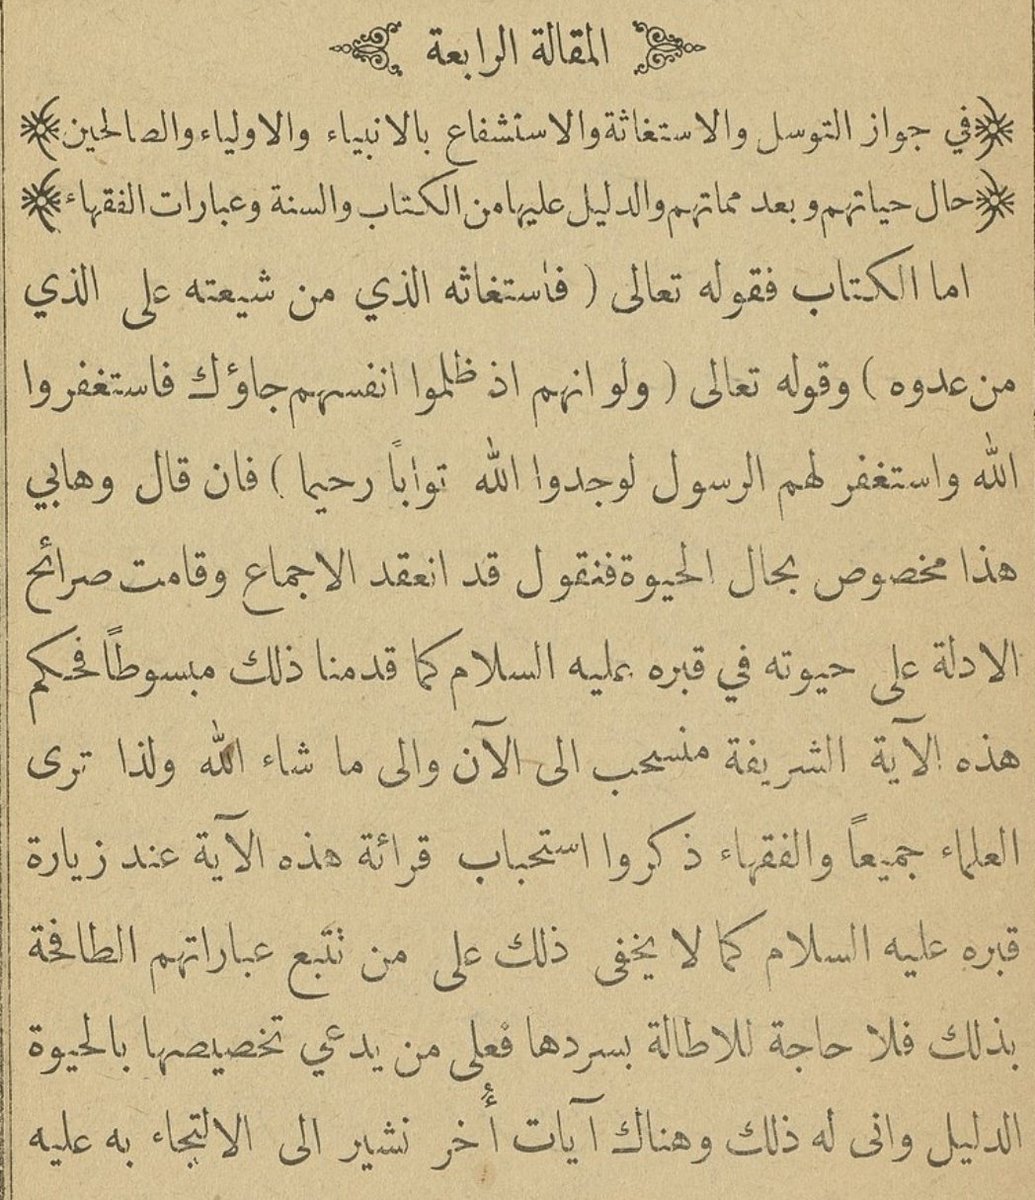 المقالة الرابعة
﴿في جواز التوسل والاستغاثة والاستشفاع بالانبياء والاولياء والصالحين﴾
﴿حال حياتهم وبعد مماتهم والدليل عليها من الكتاب والسنة وعبارات الفقهاء﴾
اما الكتاب فقوله تعالى ( فاستغاثه الذي من شيعته على الذي
من عدوه ) وقوله تعالى ( ولو انهم اذ ظلموا انفسهم جاؤك فاستغفروا
الله واستغفر لهم الرسول لوجدوا الله تواباً رحيما ) فان قال وهابي
هذا مخصوص بحال الحيوة فنقول قد انعقد الاجماع وقامت صرائح
الادلة على حيوته في قبره عليه السلام كما قدمنا ذلك مبسوطاً فحكم
هذه الآية الشريفة منسحب الى الآن والى ما شاء الله ولذا ترى
العلماء جميعاً والفقهاء ذكروا استحباب قرائة هذه الآية عند زيارة
قبره عليه السلام كما لا يخفى ذلك على من تتبع عباراتهم الطافحة
بذلك فلا حاجة للاطالة بسردها فعلى من يدعي تخصيصها بالحيوة
الدليل وانى له ذلك وهناك آيات أُخر تشير الى الالتجاء به عليه